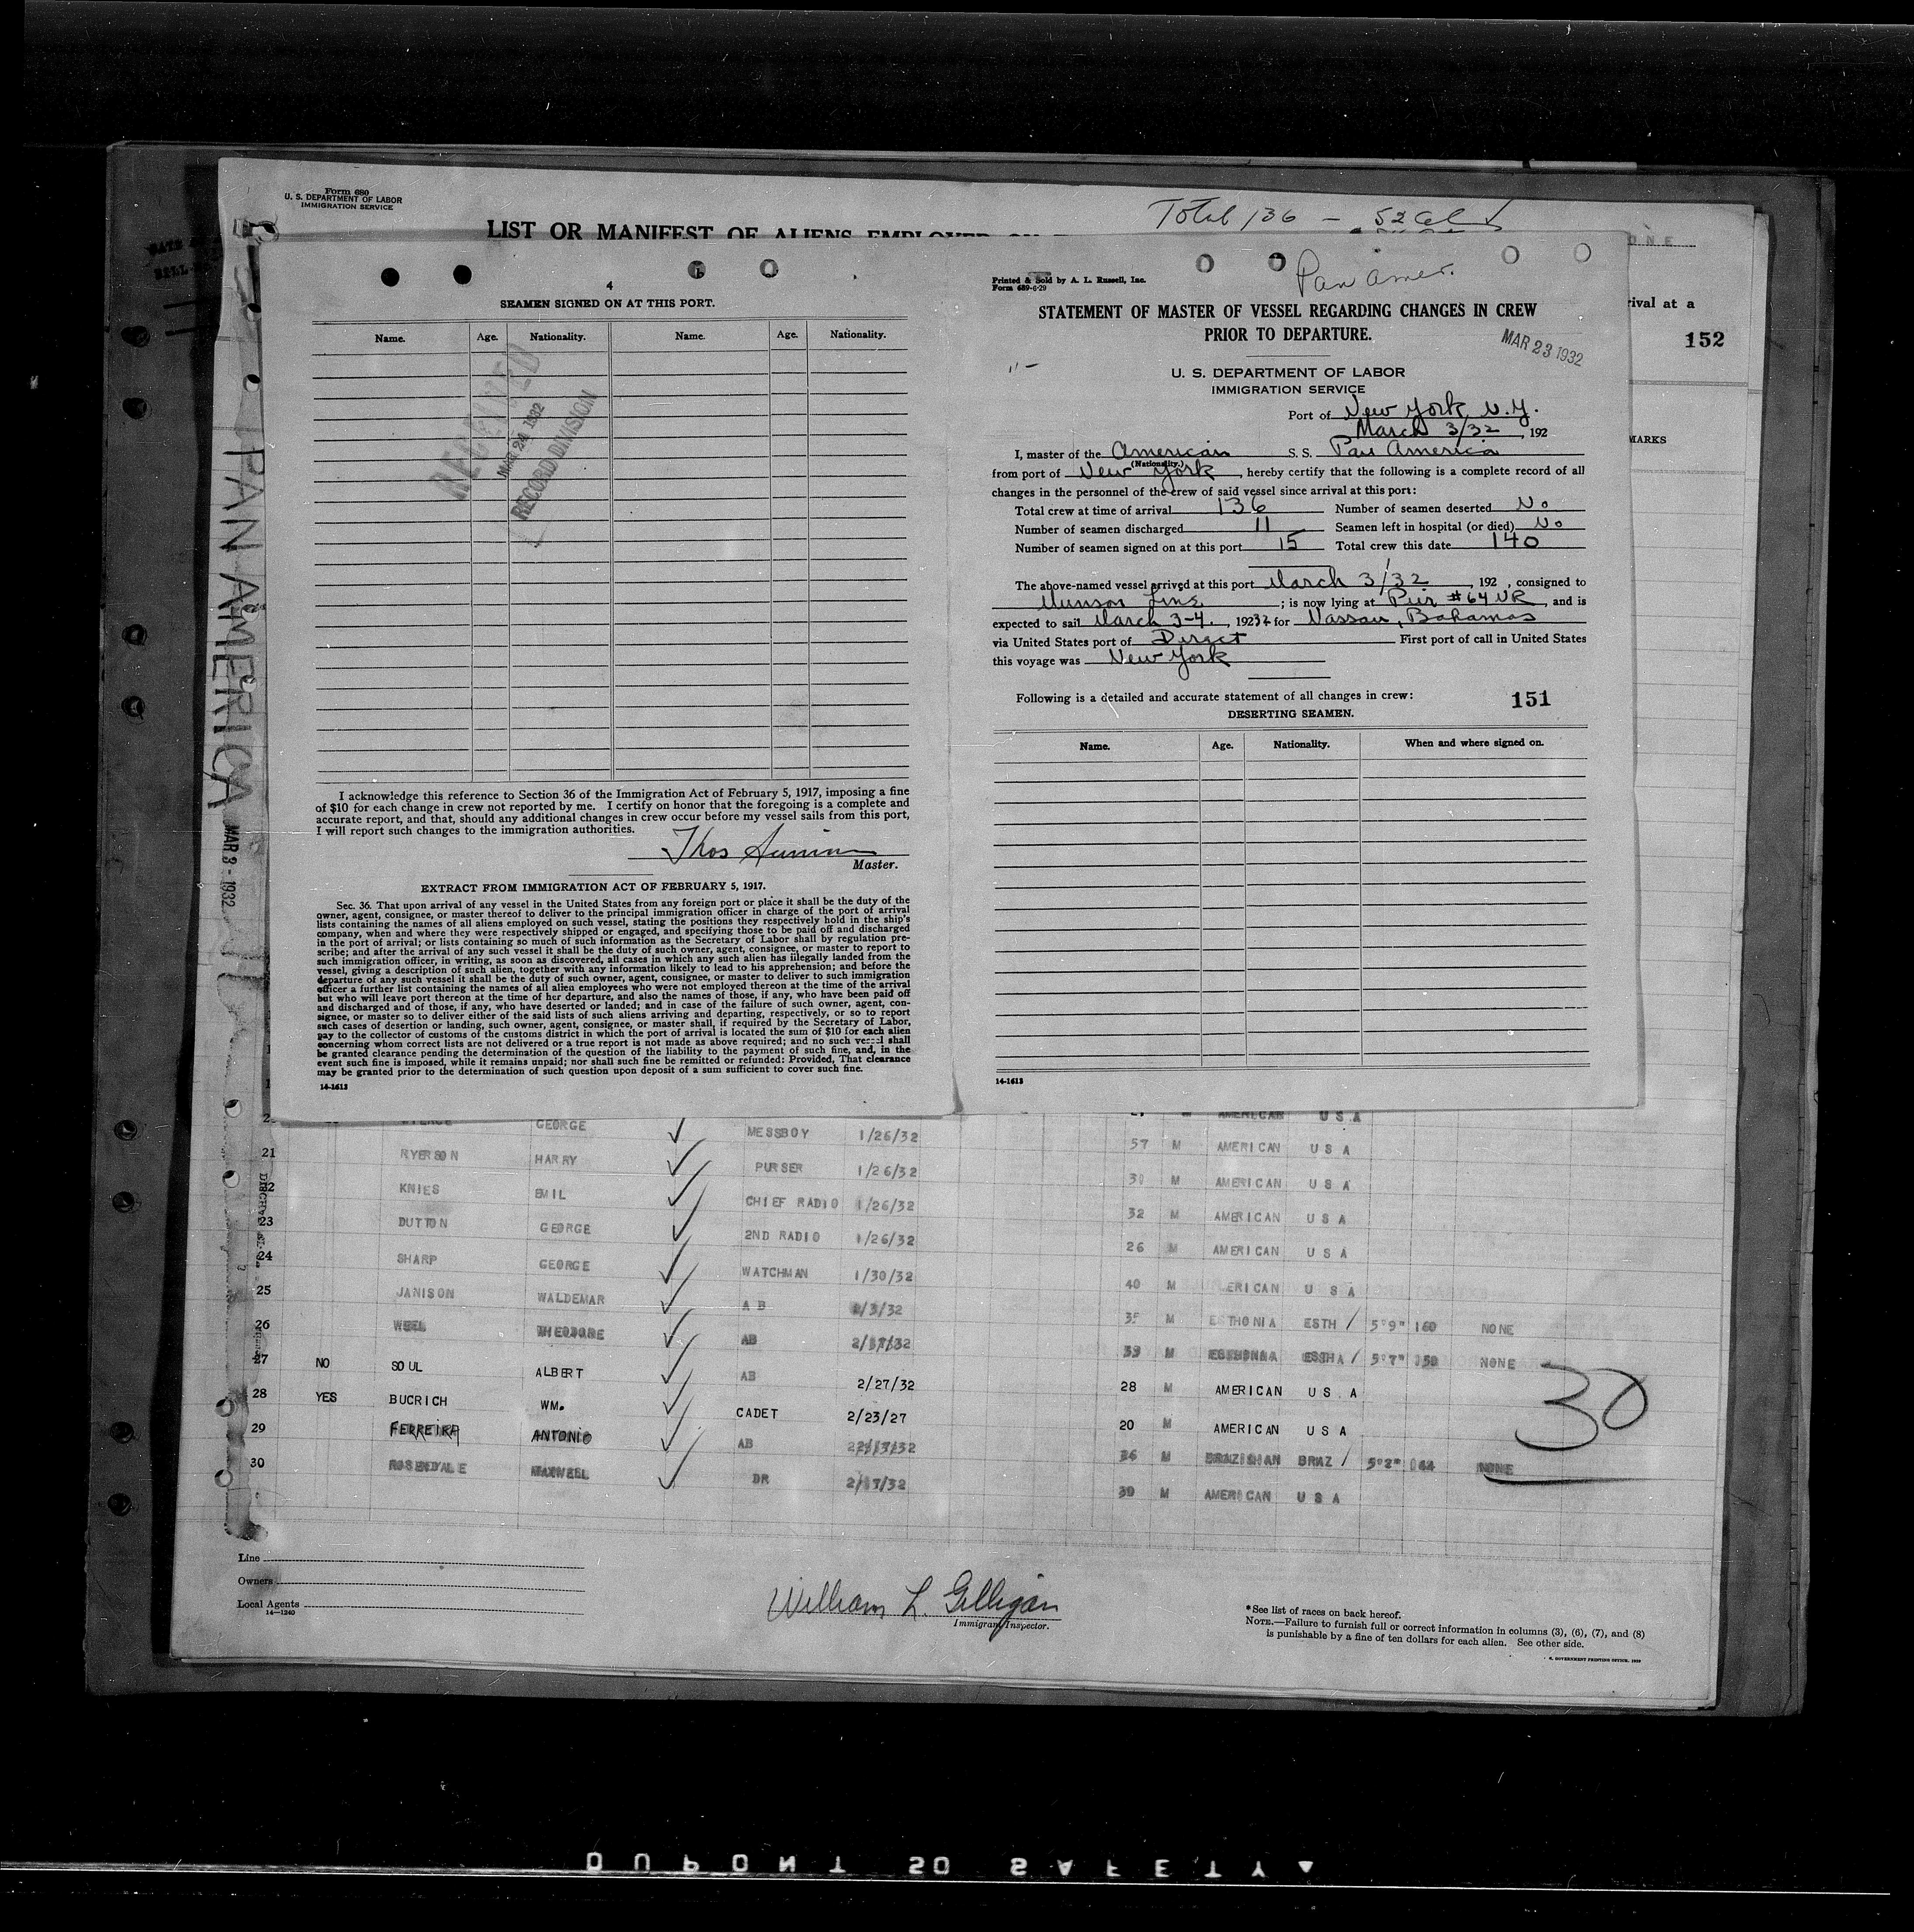 Form 680
U. S. DEPARTMENT OF LABOR
IMMIGRATION SERVICE
LIST OR MANIFEST OF ALIENS EMPLOYED
Total 136 -
rival at a
152
MARKS
PAN AMERICA
MAR 3 - 1932
4
SEAMEN SIGNED ON AT THIS PORT.
Name. Age. Nationality. Name. Age. Nationality.
RECEIVED
MAR 24 1932
RECORD DIVISION
I acknowledge this reference to Section 36 of the Immigration Act of February 5, 1917, imposing a fine
of $10 for each change in crew not reported by me. I certify on honor that the foregoing is a complete and
accurate report, and that, should any additional changes in crew occur before my vessel sails from this port,
I will report such changes to the immigration authorities.
Thos
Master.
EXTRACT FROM IMMIGRATION ACT OF FEBRUARY 5, 1917.
Sec. 36. That upon arrival of any vessel in the United States from any foreign port or place it shall be the duty of the
owner, agent, consignee, or master thereof to deliver to the principal immigration officer in charge of the port of arrival
lists containing the names of all aliens employed on such vessel, stating the positions they respectively hold in the ship's
company, when and where they were respectively shipped or engaged, and specifying those to be paid off and discharged
in the port of arrival; or lists containing so much of such information as the Secretary of Labor shall by regulation pre-
scribe; and after the arrival of any such vessel it shall be the duty of such owner, agent, consignee, or master to report to
such immigration officer, in writing, as soon as discovered, all cases in which any such alien has illegally landed from the
vessel, giving a description of such alien, together with any information likely to lead to his apprehension; and before the
departure of any such vessel it shall be the duty of such owner, agent, consignee, or master to deliver to such immigration
officer a further list containing the names of all alien employees who were not employed thereon at the time of the arrival
but who will leave port thereon at the time of her departure, and also the names of those, if any, who have been paid off
and discharged and of those, if any, who have deserted or landed; and in case of the failure of such owner, agent, con-
signee, or master so to deliver either of the said lists of such aliens arriving and departing, respectively, or so to report
such cases of desertion or landing, such owner, agent, consignee, or master shall, if required by the Secretary of Labor,
pay to the collector of customs of the customs district in which the port of arrival is located the sum of $10 for each alien
concerning whom correct lists are not delivered or a true report is not made as above required; and no such vessel shall
be granted clearance pending the determination of the question of the liability to the payment of such fine, and, in the
event such fine is imposed, while it remains unpaid; nor shall such fine be remitted or refunded: Provided, That clearance
may be granted prior to the determination of such question upon deposit of a sum sufficient to cover such fine.
14-1613
Printed & Sold by A. L. Russell, Inc.
Form 689-6-29
Pan Amer.
STATEMENT OF MASTER OF VESSEL REGARDING CHANGES IN CREW
PRIOR TO DEPARTURE.
MAR 23 1932
U. S. DEPARTMENT OF LABOR
IMMIGRATION SERVICE
Port of New York N.Y.
March 3/32, 192
I, master of the American S. S. Pan America
(Nationality.)
from port of New York, hereby certify that the following is a complete record of all
changes in the personnel of the crew of said vessel since arrival at this port:
Total crew at time of arrival 136 Number of seamen deserted No
Number of seamen discharged 11 Seamen left in hospital (or died) No
Number of seamen signed on at this port 15 Total crew this date 140
The above-named vessel arrived at this port March 3/32, 192 , consigned to
Munson Line ; is now lying at Pier #64 NR, and is
expected to sail March 3-4, 19232 for Nassau, Bahamas
via United States port of Direct First port of call in United States
this voyage was New York
Following is a detailed and accurate statement of all changes in crew:
151
DESERTING SEAMEN.
Name. Age. Nationality. When and where signed on.
14-1613
GEORGE MESSBOY 1/26/32 57 M AMERICAN U S A
21 RYERSON HARRY PURSER 1/26/32 30 M AMERICAN U S A
22 KNIES EMIL CHIEF RADIO 1/26/32 32 M AMERICAN U S A
23 DUTTON GEORGE 2ND RADIO 1/26/32 26 M AMERICAN U S A
24 SHARP GEORGE WATCHMAN 1/30/32 40 M AMERICAN U S A
25 JANISON WALDEMAR A B 2/3/32 35 M ESTHONIA ESTH / 5'9" 160 NONE
26 THEODORE AB 39 M / 5'7" 150 NONE
27 NO SOUL ALBERT AB 2/27/32 28 M AMERICAN U S A
28 YES BUCRICH WM. CADET 2/23/27 20 M AMERICAN U S A
29 FERREIRA ANTONIO AB 36 M BRAZILIAN BRAZ / 5'2" 144 NONE
30 ROSENDALE MAXWELL DR 2/17/32 39 M AMERICAN U S A
30
Line
Owners
Local Agents
14—1240
William L. Gilligan
Immigrant Inspector.
*See list of races on back hereof.
NOTE.—Failure to furnish full or correct information in columns (3), (6), (7), and (8)
is punishable by a fine of ten dollars for each alien. See other side.
DUPONT SO SAFETY